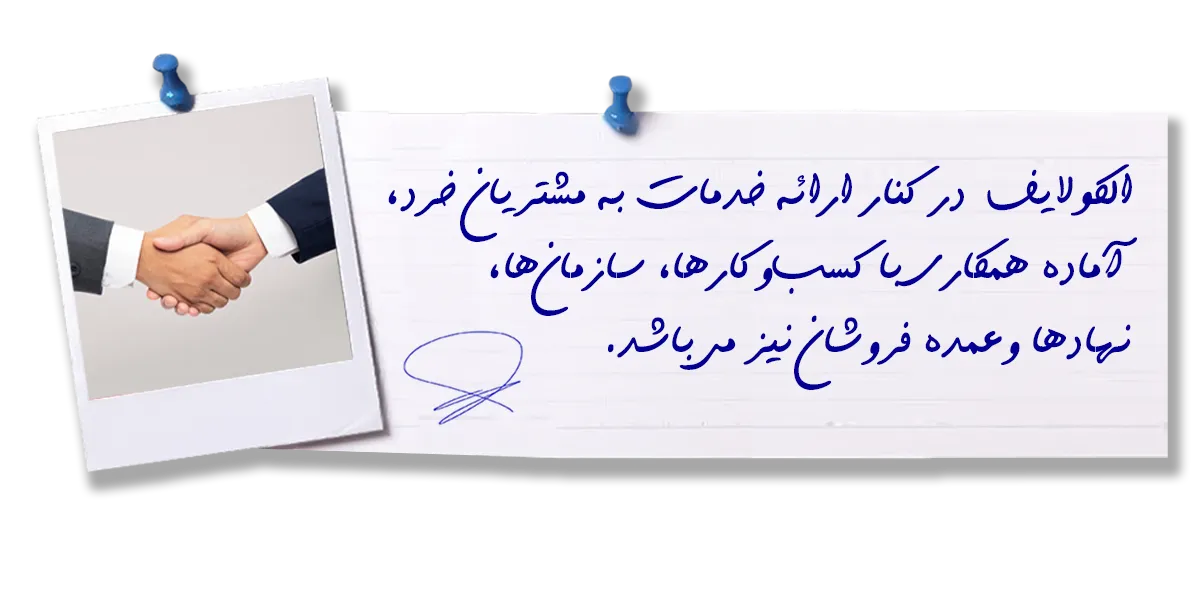 الکولایف در کنار ارائه خدمات به مشتریان خرد،
آماده همکاری با کسب‌وکارها، سازمان‌ها،
نهادها و عمده فروشان نیز می‌باشد.